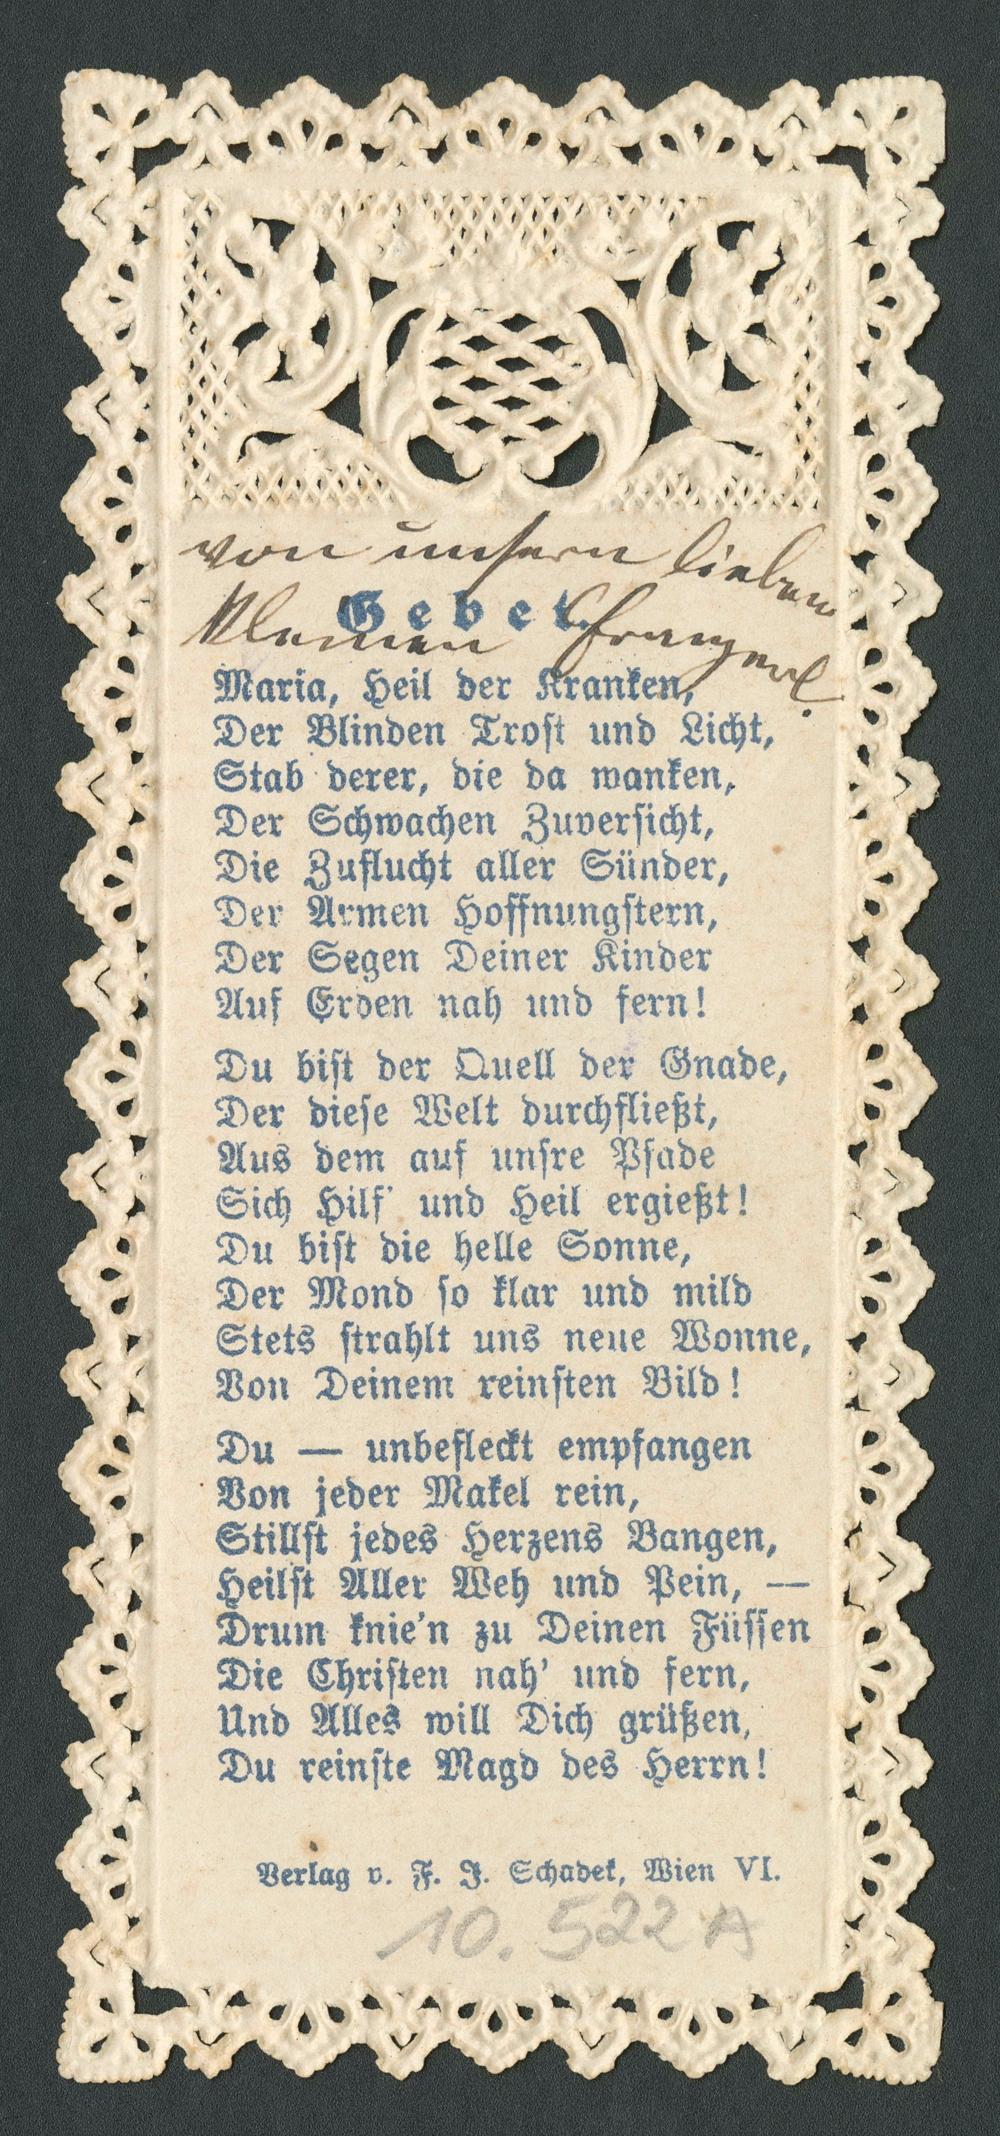 von unsern lieben
kleinen Franzerl.
Gebet.
Maria, Heil der Kranken,
Der Blinden Trost und Licht,
Stab derer, die da wanken,
Der Schwachen Zuversicht,
Die Zuflucht aller Sünder,
Der Armen Hoffnungstern,
Der Segen Deiner Kinder
Auf Erden nah und fern!
Du bist der Quell der Gnade,
Der diese Welt durchfließt,
Aus dem auf unsre Pfade
Sich Hilf' und Heil ergießt!
Du bist die helle Sonne,
Der Mond so klar und mild
Stets strahlt uns neue Wonne,
Von Deinem reinsten Bild!
Du — unbefleckt empfangen
Von jeder Makel rein,
Stillst jedes Herzens Bangen,
Heilst Aller Weh und Pein, —
Drum knie'n zu Deinen Füssen
Die Christen nah' und fern,
Und Alles will Dich grüßen,
Du reinste Magd des Herrn!
Verlag v. F. J. Schadek, Wien VI.
10.522 A